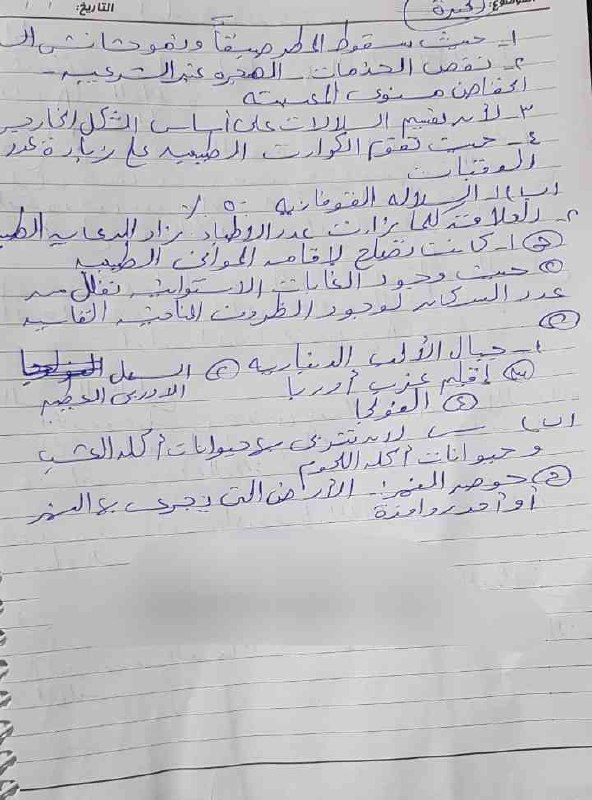 التاريخ: / / الموضوع: (الجيزة)
١- حيث سقوط المطر صيفاً ونمو حشائش الـ
٢- نقص الخدمات - الهجرة غير الشرعية -
انخفاض مستوى المعيشة
٣- لأنه تقسيم السلالات على أساس الشكل الخارجي
٤- حيث تقوم الكوارث الطبيعية على زيادة عدد
الوفيات
(ب) ١- السلالة القوقازية ٥٠ ٪
٢- العلاقة كلما زادت عدد الأطباء زاد الرعاية الطبية
١- كانت تصلح لإقامة الموانئ الطبيعية
حيث وجود الغابات الاستوائية تقلل من
عدد السكان لوجود الظروف المناخية القاسية
١- جبال الألب الدينارية ٢ السهل
الأوربى العظيم
٣ إقليم غرب أوربا
٤ الفولجا
(ب) لأنه تتربى به حيوانات أكلة العشب
و حيوانات أكلة اللحوم
حوض النهر:- الأرض التى يجرى به النهر
أو أحد روافدة